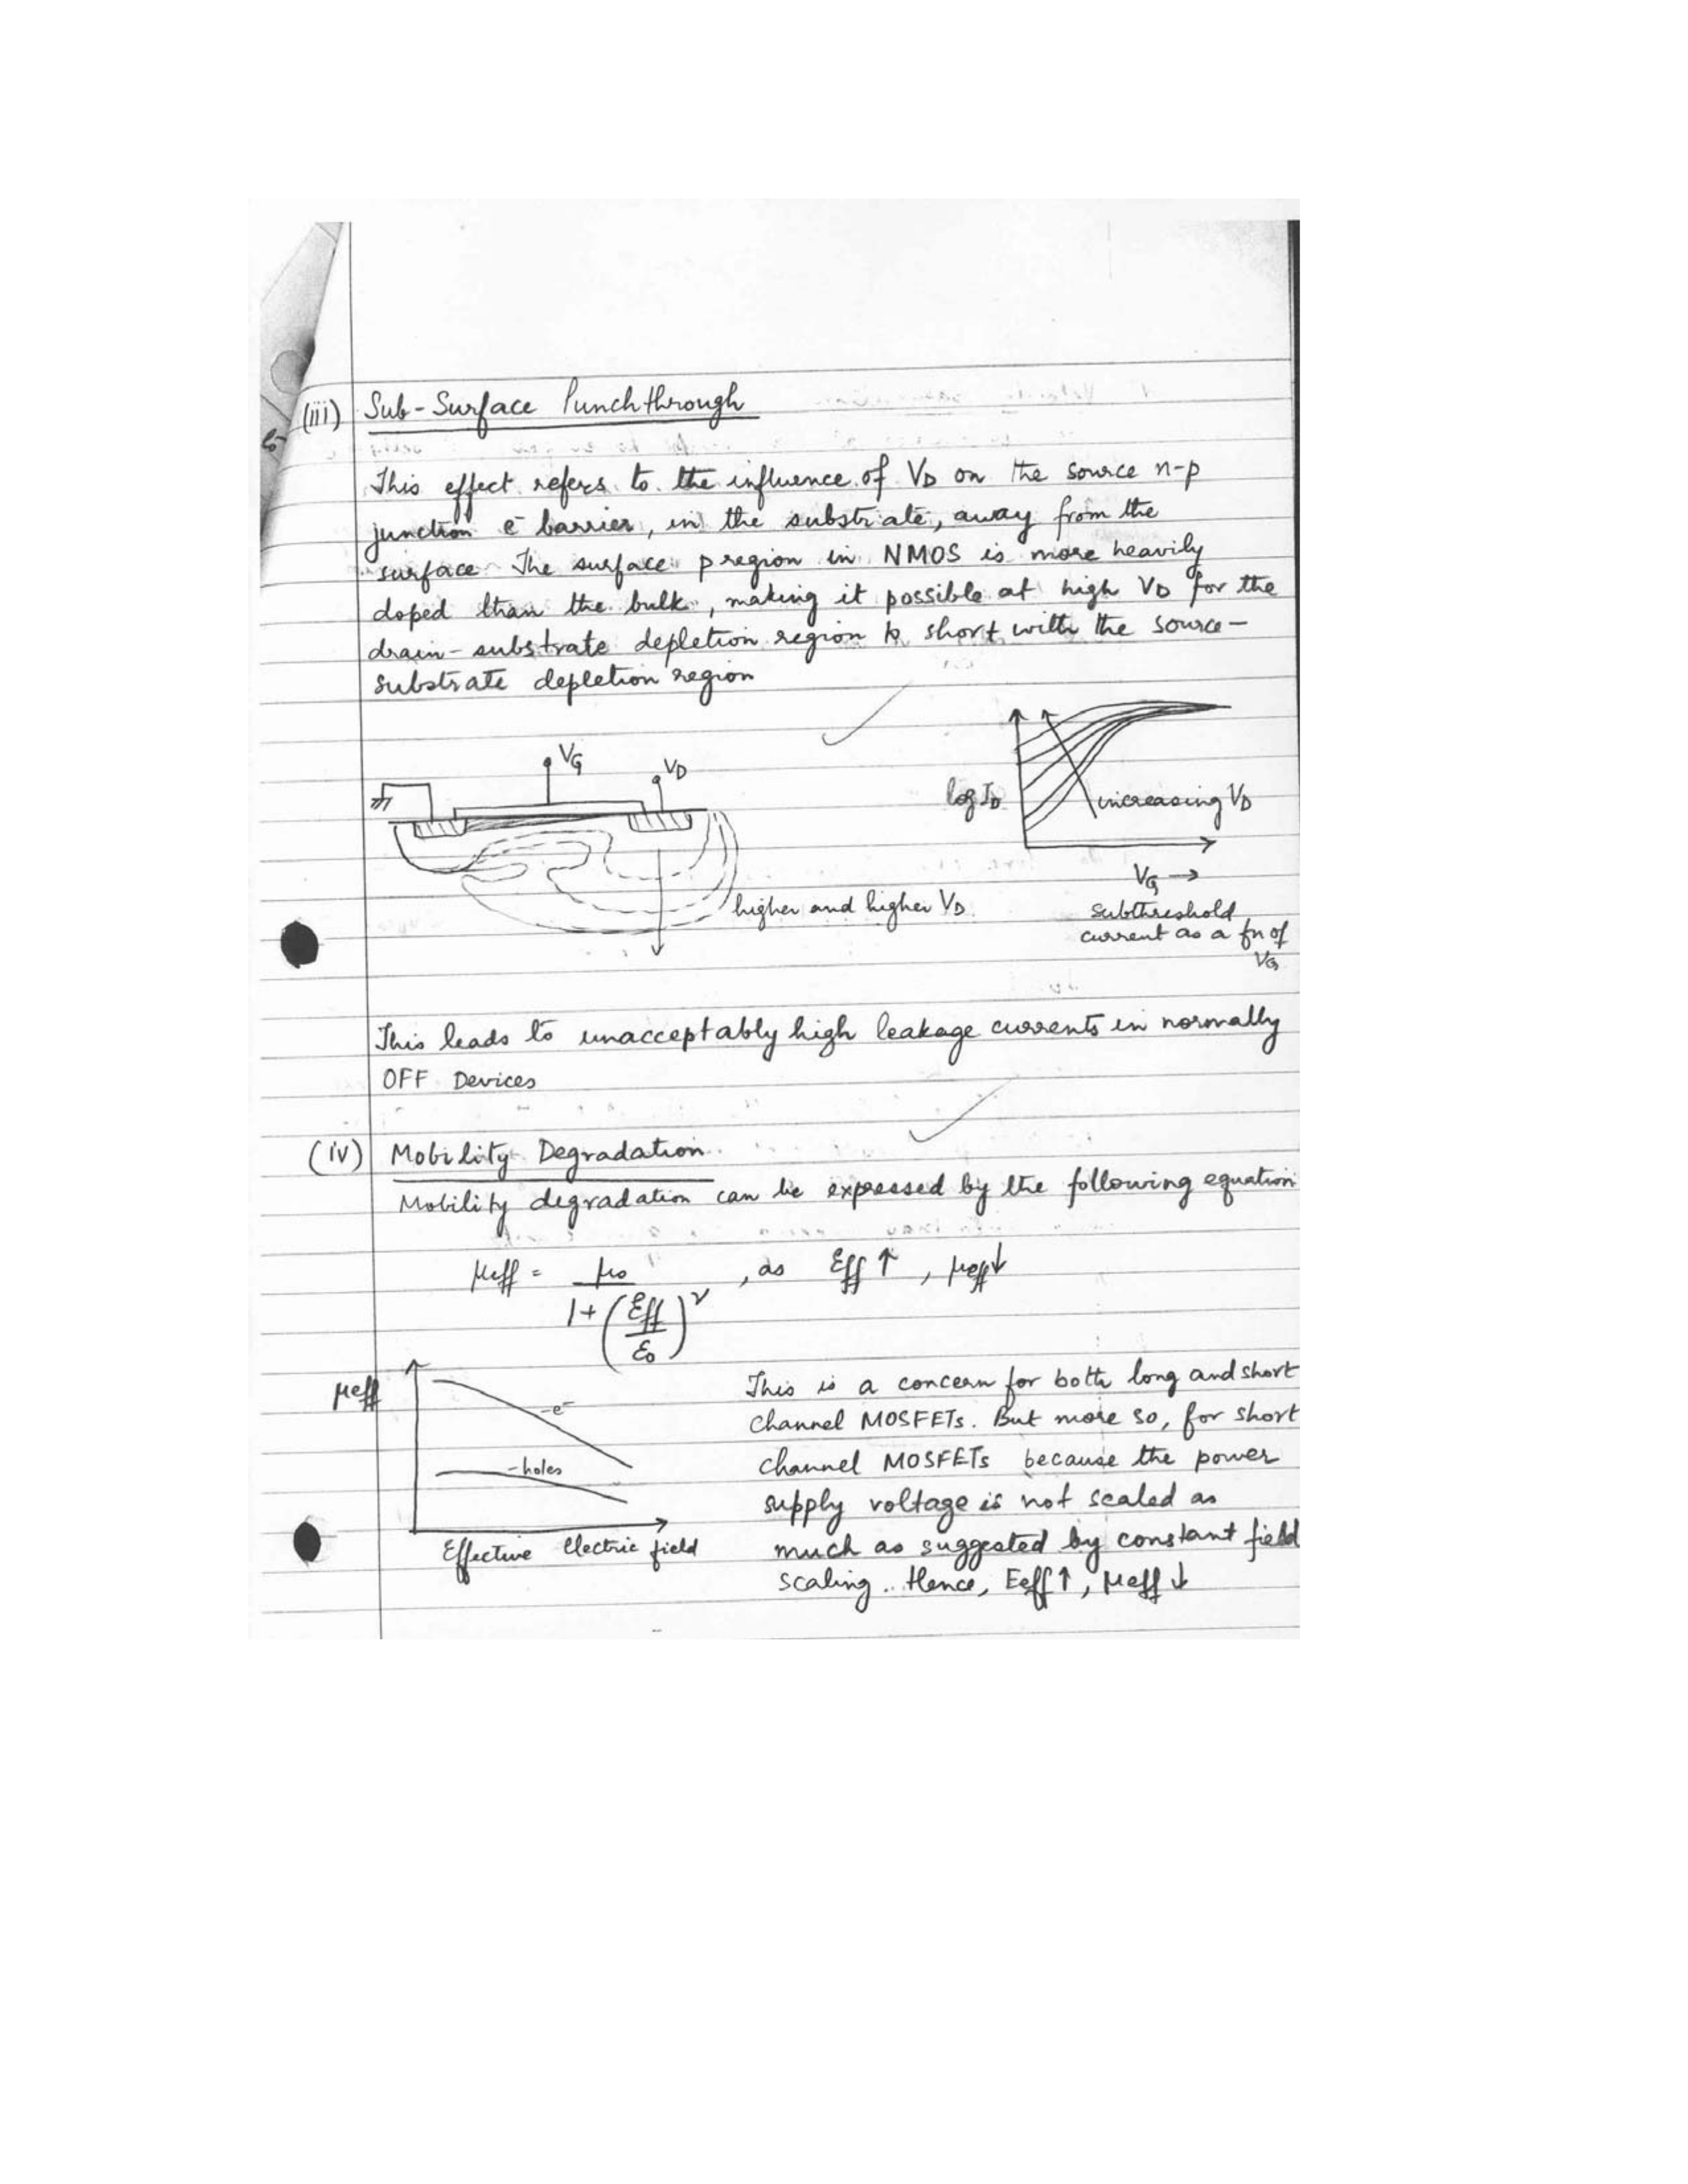 (iii) Sub-Surface Punchthrough
This effect refers to the influence of VD on the source n-p
junction e⁻ barrier, in the substrate, away from the
surface. The surface p region in NMOS is more heavily
doped than the bulk, making it possible at high VD for the
drain-substrate depletion region to short with the source-
substrate depletion region
VG
VD
higher and higher VD
log ID
increasing VD
VG →
subthreshold
current as a fn of
VG
This leads to unacceptably high leakage currents in normally
OFF Devices
(iv) Mobility Degradation
Mobility degradation can be expressed by the following equation
μeff = μ0 / 1 + (Eff / E0)^ν , as Eff ↑ , μeff ↓
μeff
- e⁻
- holes
Effective Electric field
This is a concern for both long and short
channel MOSFETs. But more so, for short
channel MOSFETs because the power
supply voltage is not scaled as
much as suggested by constant field
scaling. Hence, Eeff ↑, μeff ↓